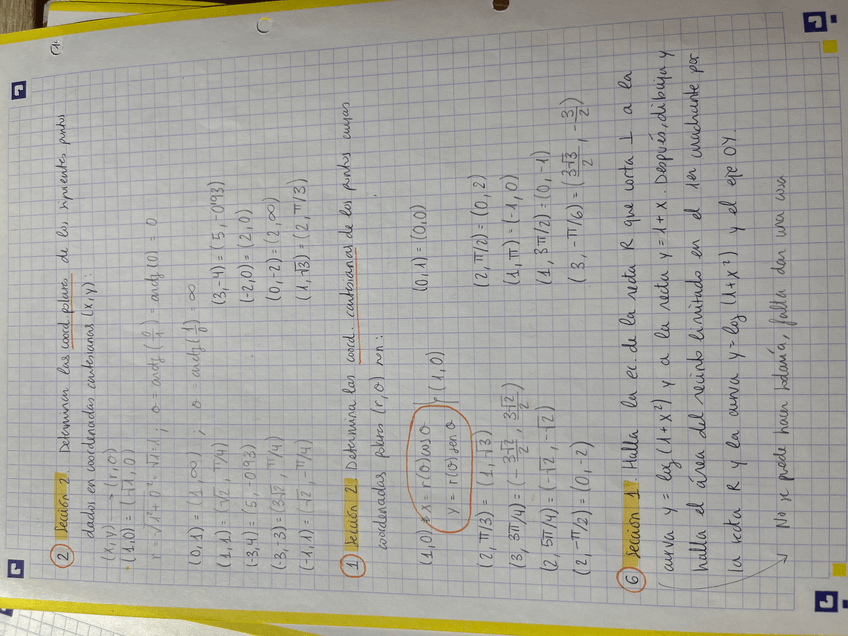 ② Sección 2. Determinar las coord. polares de los siguientes puntos
dados en coordenadas cartesianas (x,y):
(x,y) → (r,θ)
(1,0) = (√1, 0)
r = √1²+0² = √1 = 1 ; θ = arctg (0/1) = arctg (0) = 0
(0,1) = (1,∞) , θ = arctg (1/0) = ∞
(1,1) = (√2, π/4)
(-3,4) = (5, -0'93)
(-3,-3) = (3√2, π/4)
(-1,1) = (√2, -π/4)
(3,-4) = (5, -0'93)
(-2,0) = (2,0)
(0,-2) = (2,∞)
(1,√3) = (2, π/3)
① Sección 2. Determina las coord. cartesianas de los puntos cuyas
coordenadas polares (r,θ) son:
(1,0) x = r(θ) cos θ
y = r(θ) sen θ
(1,0)
(2, π/3) = (1, √3)
(3, 3π/4) = (-3√2/2, 3√2/2)
(2, 5π/4) = (-√2, -√2)
(2, -π/2) = (0,-2)
(0,1) = (0,0)
(2, π/2) = (0,2)
(1, π) = (-1,0)
(1, 3π/2) = (0,-1)
(3, -π/6) = (3√3/2, -3/2)
⑥ Sección 1. Halla la ec. de la recta R que corta ⊥ a la
curva y = log (1+x²) y a la recta y = 1+x. Después, dibuja y
halla el área del recinto limitado en el 1er cuadrante por
la recta R y la curva y = log (1+x²) y el eje OY.
→ No se puede hacer todavía, falta dar una cosa